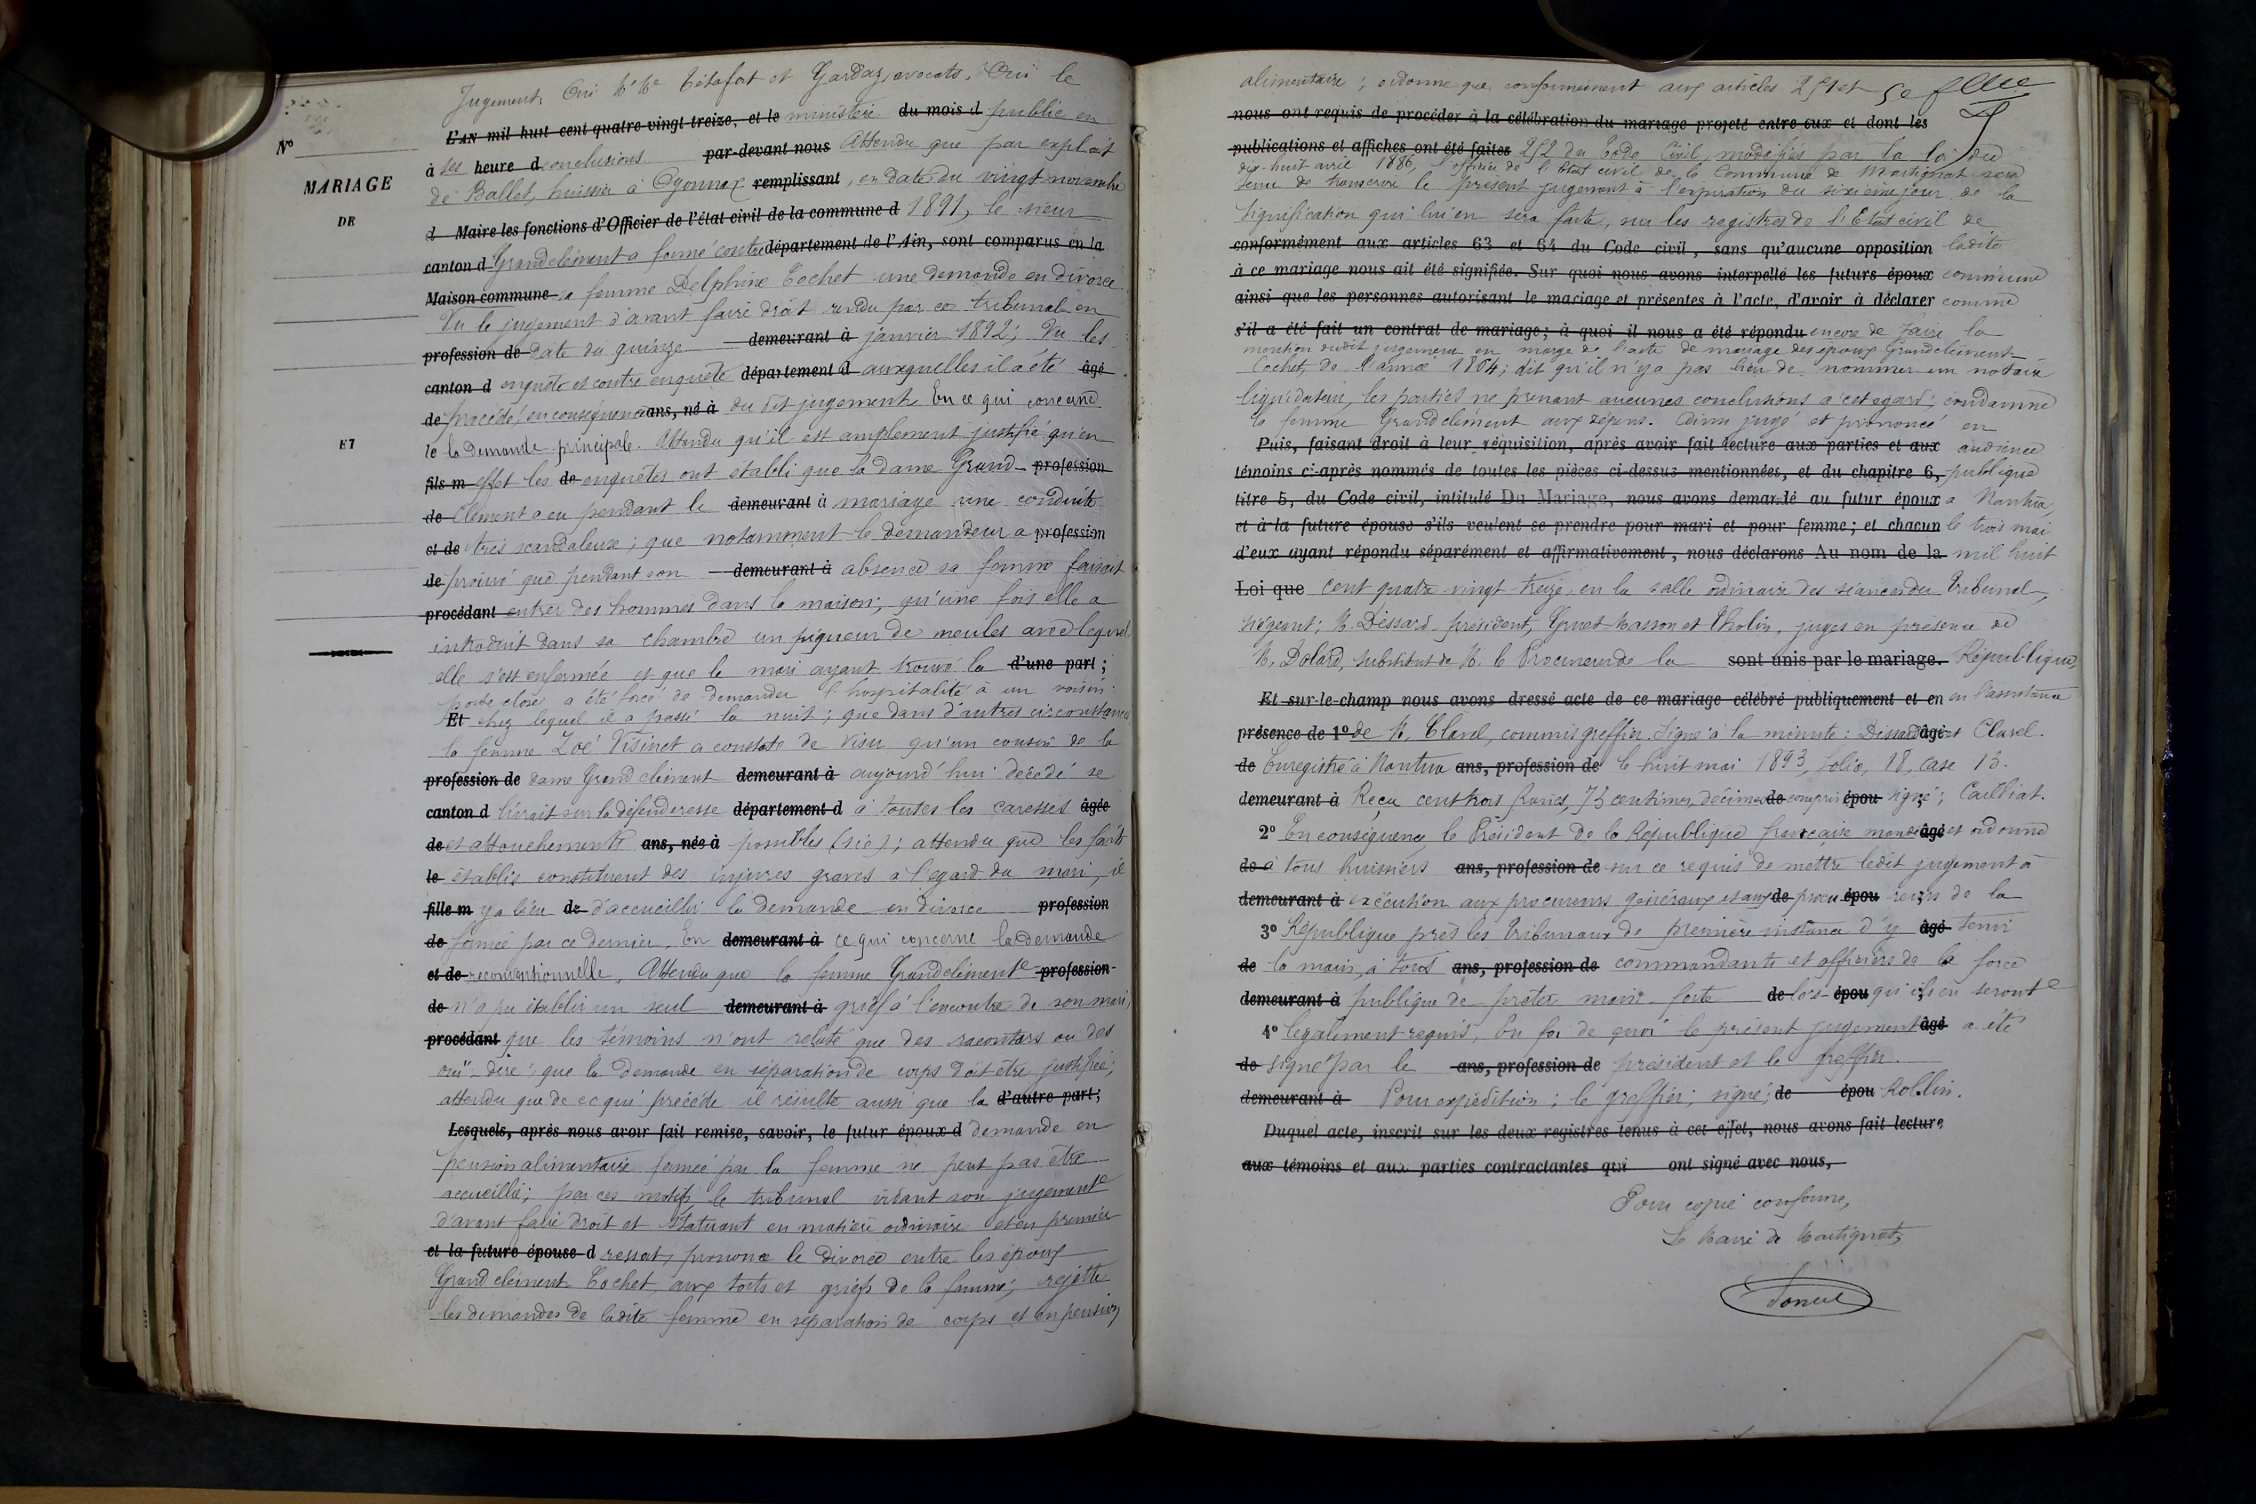 Jugement, Ouï Mes Tétafort et Gardaz, avocats, Ouï le
L'AN mil huit cent quatre-vingt treize, et le ministère du mois d public en
à ses heure d conclusions par-devant nous Attendu que par exploit
de Ballet, huissier à Oyonnax remplissant, en date du vingt novembre
d Maire les fonctions d'Officier de l'état civil de la commune d 1891, le sieur
canton d Grandclément a formé contre département de l'Ain, sont comparus en la
Maison commune sa femme Delphine Cochet une demande en divorce.
Vu le jugement d'avant faire droit rendu par ce tribunal en
profession de date du quinze demeurant à janvier 1892; Vu les
canton d enquête et contre enquête département d auxquelles il a été âgé
de procédé en conséquence ans, né à du dit jugement. En ce qui concerne
le la demande principale. Attendu qu'il est amplement justifié qu'en
fils m effet les de enquêtes ont établi que la dame Grand- profession
de clément a eu pendant le demeurant à mariage une conduite
et de très scandaleuse; que notamment le demandeur a profession
de prouvé que pendant son demeurant à absence sa femme faisait
procédant entrer des hommes dans la maison; qu'une fois elle a
introduit dans sa chambre un piqueur de meules avec lequel
elle s'est enfermée et que le mari ayant trouvé la d'une part;
porte close a été forcé de demander l'hospitalité à un voisin
Et chez lequel il a passé la nuit; que dans d'autres circonstances
la femme Zoé Visinet a constaté de visu qu'un cousin de la
profession de dame Grandclément demeurant à aujourd'hui décédé se
canton d livrait sur la défenderesse département d à toutes les caresses âgée
de et attouchements ans, née à possibles (sic); attendu que les faits
le établis constituent des injures graves à l'égard du mari, il
fille m y a lieu de d'accueillir la demande en divorce profession
de formée par ce dernier. En demeurant à ce qui concerne la demande
et de reconventionnelle. Attendu que la femme Grandclément profession
de n'a pu établir un seul demeurant à grief à l'encontre de son mari,
procédant que les témoins n'ont relaté que des racontars ou des
ouï-dire; que la demande en séparation de corps doit être justifiée;
attendu que de ce qui précède il résulte aussi que la d'autre part;
Lesquels, après nous avoir fait remise, savoir, le futur époux d demande en
pension alimentaire formée par la femme ne peut pas être
accueillie; par ces motifs le tribunal vidant son jugement
d'avant faire droit et statuant en matière ordinaire et en premier
et la future épouse d ressort, prononce le divorce entre les époux
Grandclément Cochet, aux torts et griefs de la femme; rejette
les demandes de ladite femme en séparation de corps et en pension
N°
MARIAGE
DE
ET
alimentaire; ordonne que conformément aux articles 251 et
nous ont requis de procéder à la célébration du mariage projeté entre eux et dont les
publications et affiches ont été faites 252 du Code Civil, modifiés par la loi du
dix-huit avril 1886, l'officier de l'Etat civil de la Commune de Martignat sera
tenu de transcrire le présent jugement à l'expiration du sixième jour de la
signification qui lui en sera faite, sur les registres de l'Etat civil de
conformément aux articles 63 et 64 du Code civil, sans qu'aucune opposition ladite
à ce mariage nous ait été signifiée. Sur quoi nous avons interpellé les futurs époux commune
ainsi que les personnes autorisant le mariage et présentes à l'acte, d'avoir à déclarer comme
s'il a été fait un contrat de mariage; à quoi il nous a été répondu encore de faire la
mention dudit jugement en marge de l'acte de mariage des époux Grandclément
Cochet, de l'année 1864; dit qu'il n'y a pas lieu de nommer un notaire
liquidateur, les parties ne prenant aucunes conclusions à cet égard; condamne
la femme Grandclément aux dépens. Ainsi jugé et prononcé en
Puis, faisant droit à leur réquisition, après avoir fait lecture aux parties et aux audience
témoins ci-après nommés de toutes les pièces ci-dessus mentionnées, et du chapitre 6, publique
titre 5, du Code civil, intitulé Du Mariage, nous avons demandé au futur époux à Nantua,
et à la future épouse s'ils veulent se prendre pour mari et pour femme; et chacun le trois mai
d'eux ayant répondu séparément et affirmativement, nous déclarons Au nom de la mil huit
Loi que cent quatre vingt treize, en la salle ordinaire des séances du Tribunal,
siégeant; M. Dessard, président, Masson et Tholin, juges en présence de
M. Dolard, substitut de M. le Procureur de la sont unis par le mariage. République,
Et sur-le-champ nous avons dressé acte de ce mariage célébré publiquement et en en l'assistance
présence de 1° de M. Clavel, commis greffier. Signé à la minute: Dessard âgé et Clavel.
de Enregistré à Nantua ans, profession de le huit mai 1893, folio, 18, case 13.
demeurant à Reçu cent trois francs, 75 centimes, décimes de compris épou signé; Cailliat.
2° En conséquence, le Président de la République française mande âgé et ordonne
de à tous huissiers ans, profession de sur ce requis de mettre ledit jugement à
demeurant à exécution aux procureurs généraux et aux de procu épou reurs de la
3° République près les Tribunaux de première instance d'y âgé tenir
de la main, à tous ans, profession de commandants et officiers de la force
demeurant à publique de prêter main-forte de lors épou qu'ils en seront
4° légalement requis. En foi de quoi le présent jugement âgé a été
de signé par le ans, profession de président et le greffier.
demeurant à Pour expédition; le greffier; signé; de épou Rollin.
Duquel acte, inscrit sur les deux registres tenus à cet effet, nous avons fait lecture
aux témoins et aux parties contractantes qui ont signé avec nous,
Pour copie conforme,
Le Maire de Martignat,